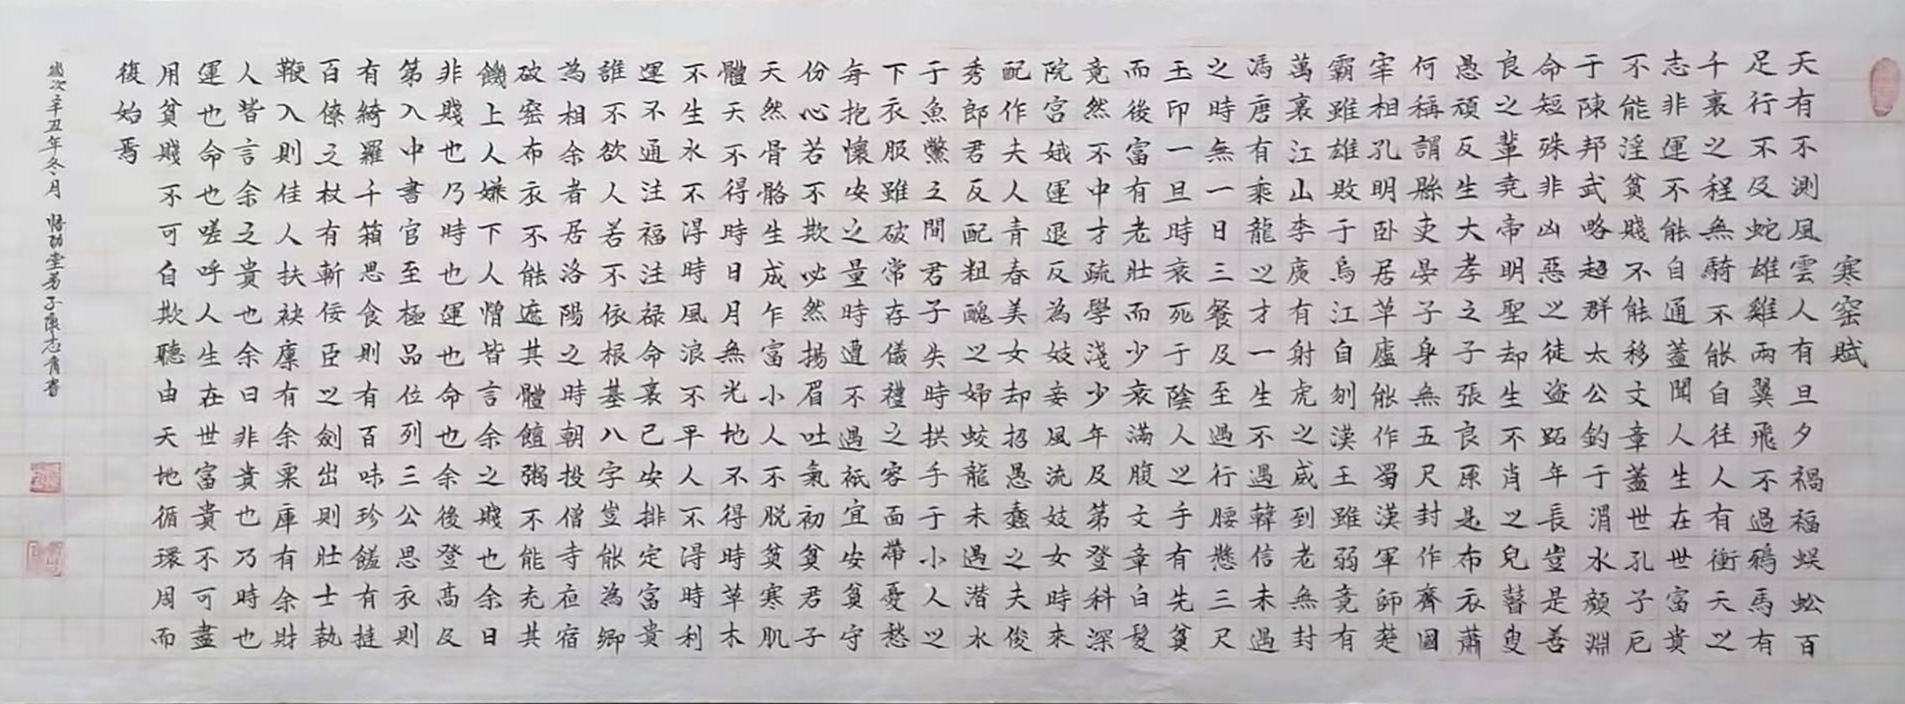 寒窑賦
天有不測風雲人有旦夕禍福蜈蚣百
足行不及蛇雄雞兩翼飛不過鴉馬有
千裏之程無騎不能自往人有衝天之
志非運不能自通蓋聞人生在世富貴
不能淫貧賤不能移文章蓋世孔子厄
于陳邦武略超群太公釣于渭水顏淵
命短殊非凶惡之徒盜跖年長豈是善
良之輩堯帝明聖却生不肖之兒瞽叟
愚頑反生大孝之子張良原是布衣蕭
何稱謂縣吏晏子身無五尺封作齊國
宰相孔明卧居草廬能作蜀漢軍師楚
霸雖雄敗于烏江自刎漢王雖弱竟有
萬裏江山李廣有射虎之威到老無封
馮唐有乘龍之才一生不遇韓信未遇
之時無一日三餐及至遇行腰懸三尺
玉印一旦時衰死于陰人之手有先貧
而後富有老壯而少衰滿腹文章白髮
竟然不中才疏學淺少年及第登科深
院宮娥運退反為妓妾風流妓女時來
配作夫人青春美女却招愚蠢之夫俊
秀郎君反配粗醜之婦蛟龍未遇潛水
于魚鱉之間君子失時拱手于小人之
下衣服雖破常存儀禮之容面帶憂愁
每抱懷安之量時遭不遇衹宜安貧守
份心若不欺必然揚眉吐氣初貧君子
天然骨骼生成乍富小人不脱貧寒肌
體天不得時日月無光地不得時草木
不生水不得時風浪不平人不得時利
運不通注福注禄命裏已安排定富貴
誰不欲人若不依根基八字豈能為卿
為相余者居洛陽之時朝投僧寺夜宿
破窑布衣不能遮其體饘粥不能充其
饑上人嫌下人憎皆言余之賤也余曰
非賤也乃時也運也命也余後登高及
第入中書官至極品位列三公思衣則
有綺羅千箱思食則有百味珍饈有撻
百僚之杖有斬佞臣之劍出則壯士執
鞭入則佳人扶袂廩有余粟庫有余財
人皆言余之貴也余曰非貴也乃時也
運也命也嗟呼人生在世富貴不可盡
用貧賤不可自欺聽由天地循環周而
復始焉
歲次辛丑年冬月 堂弟子陳志青書